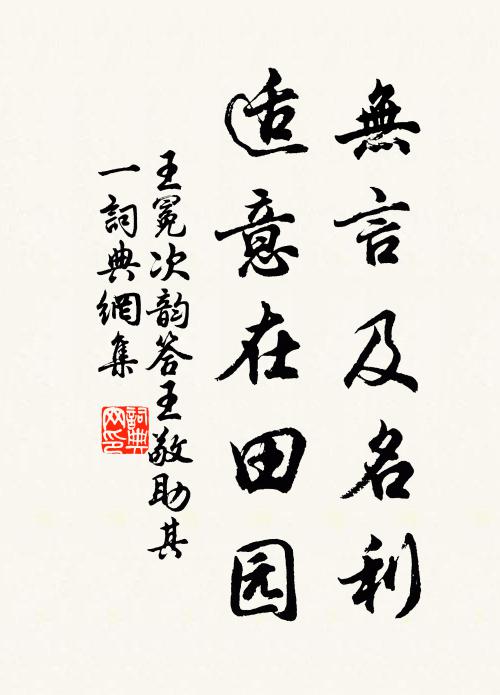 無言及名利
适意在田园
王冕次韵答王敬助其
一詞典網集
詞典
网印